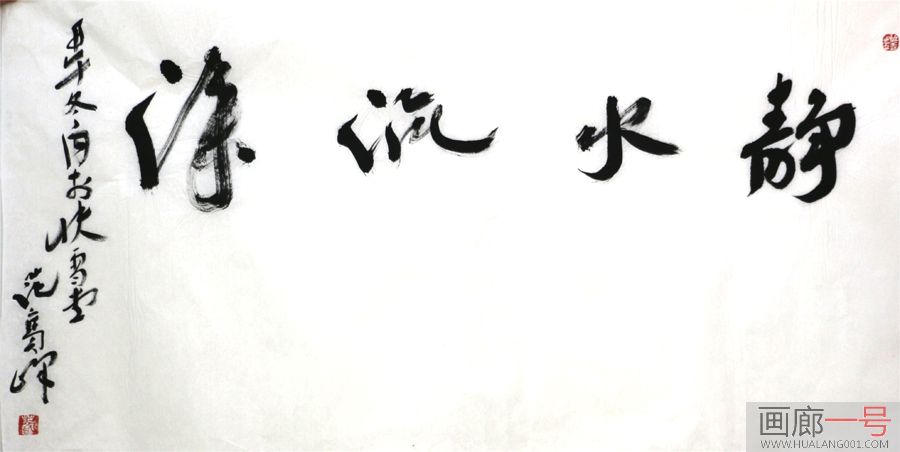 静水流深
丑年冬月于快雪堂
范高峰
画廊一号
WWW.HUALANG001.COM